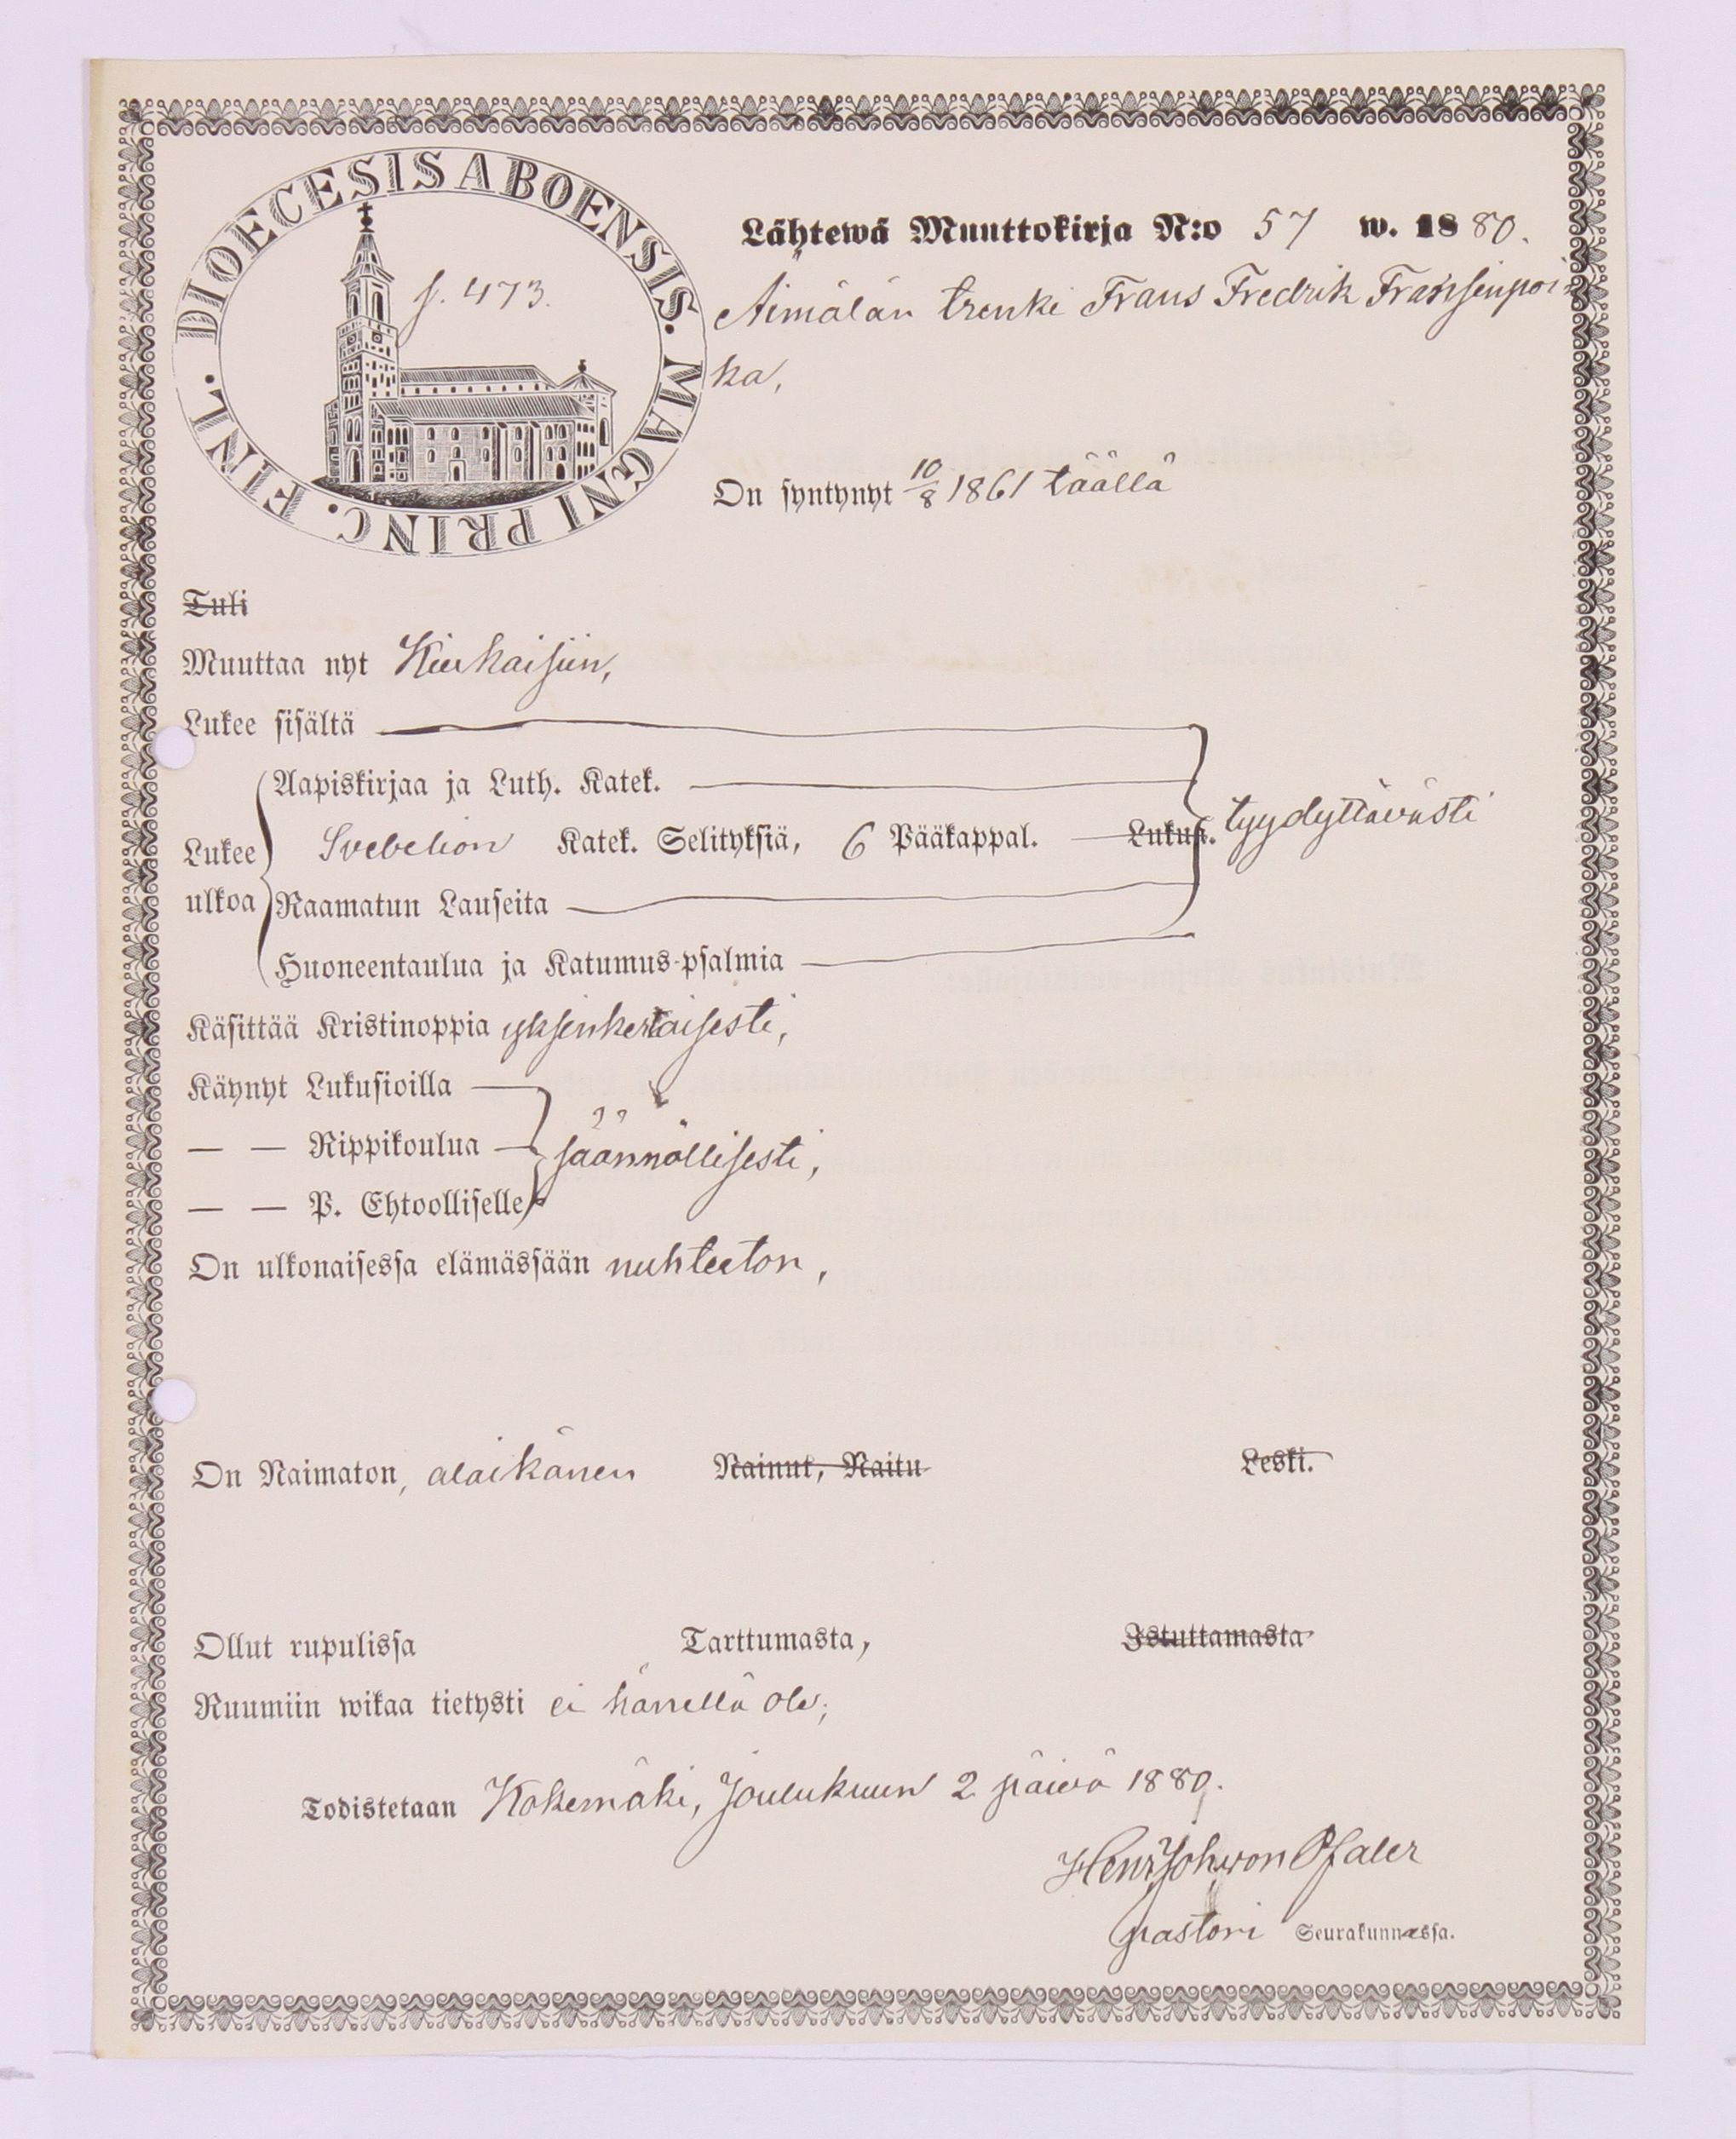 DIOECESIS ABOENSIS. MAGNI PRINC. FINL.
f. 473.
Lähtewä Muuttokirja N:o 57 w. 1880.
Äimälän trenki Frans Fredrik Fransenpoi
ka,
On syntynyt 10/8 1861 täällä
Tuli
Muuttaa nyt Kiukaisiin,
Lukee sisältä
Aapiskirjaa ja Luth. Katek.
Lukee Svebelion Katek. Selityksiä, 6 Pääkappal. Lukus. tyydyttävästi
ulkoa Raamatun Lauseita
Huoneentaulua ja Katumus-psalmia
Käsittää Kristinoppia yksinkertaisesti,
Käynyt Lukusioilla
— — Rippikoulua säännöllisesti,
— — P. Ehtoolliselle
On ulkonaisessa elämässään nuhteeton,
On Naimaton, alaikänen Nainut, Naitu Leski.
Ollut rupulissa Tarttumasta, Istuttamasta
Ruumiin wikaa tietysti ei hänellä ole;
Todistetaan Kokemäki, Joulukuun 2 päivä 1880.
Henr. Joh. von Pfaler
pastori Seurakunnassa.